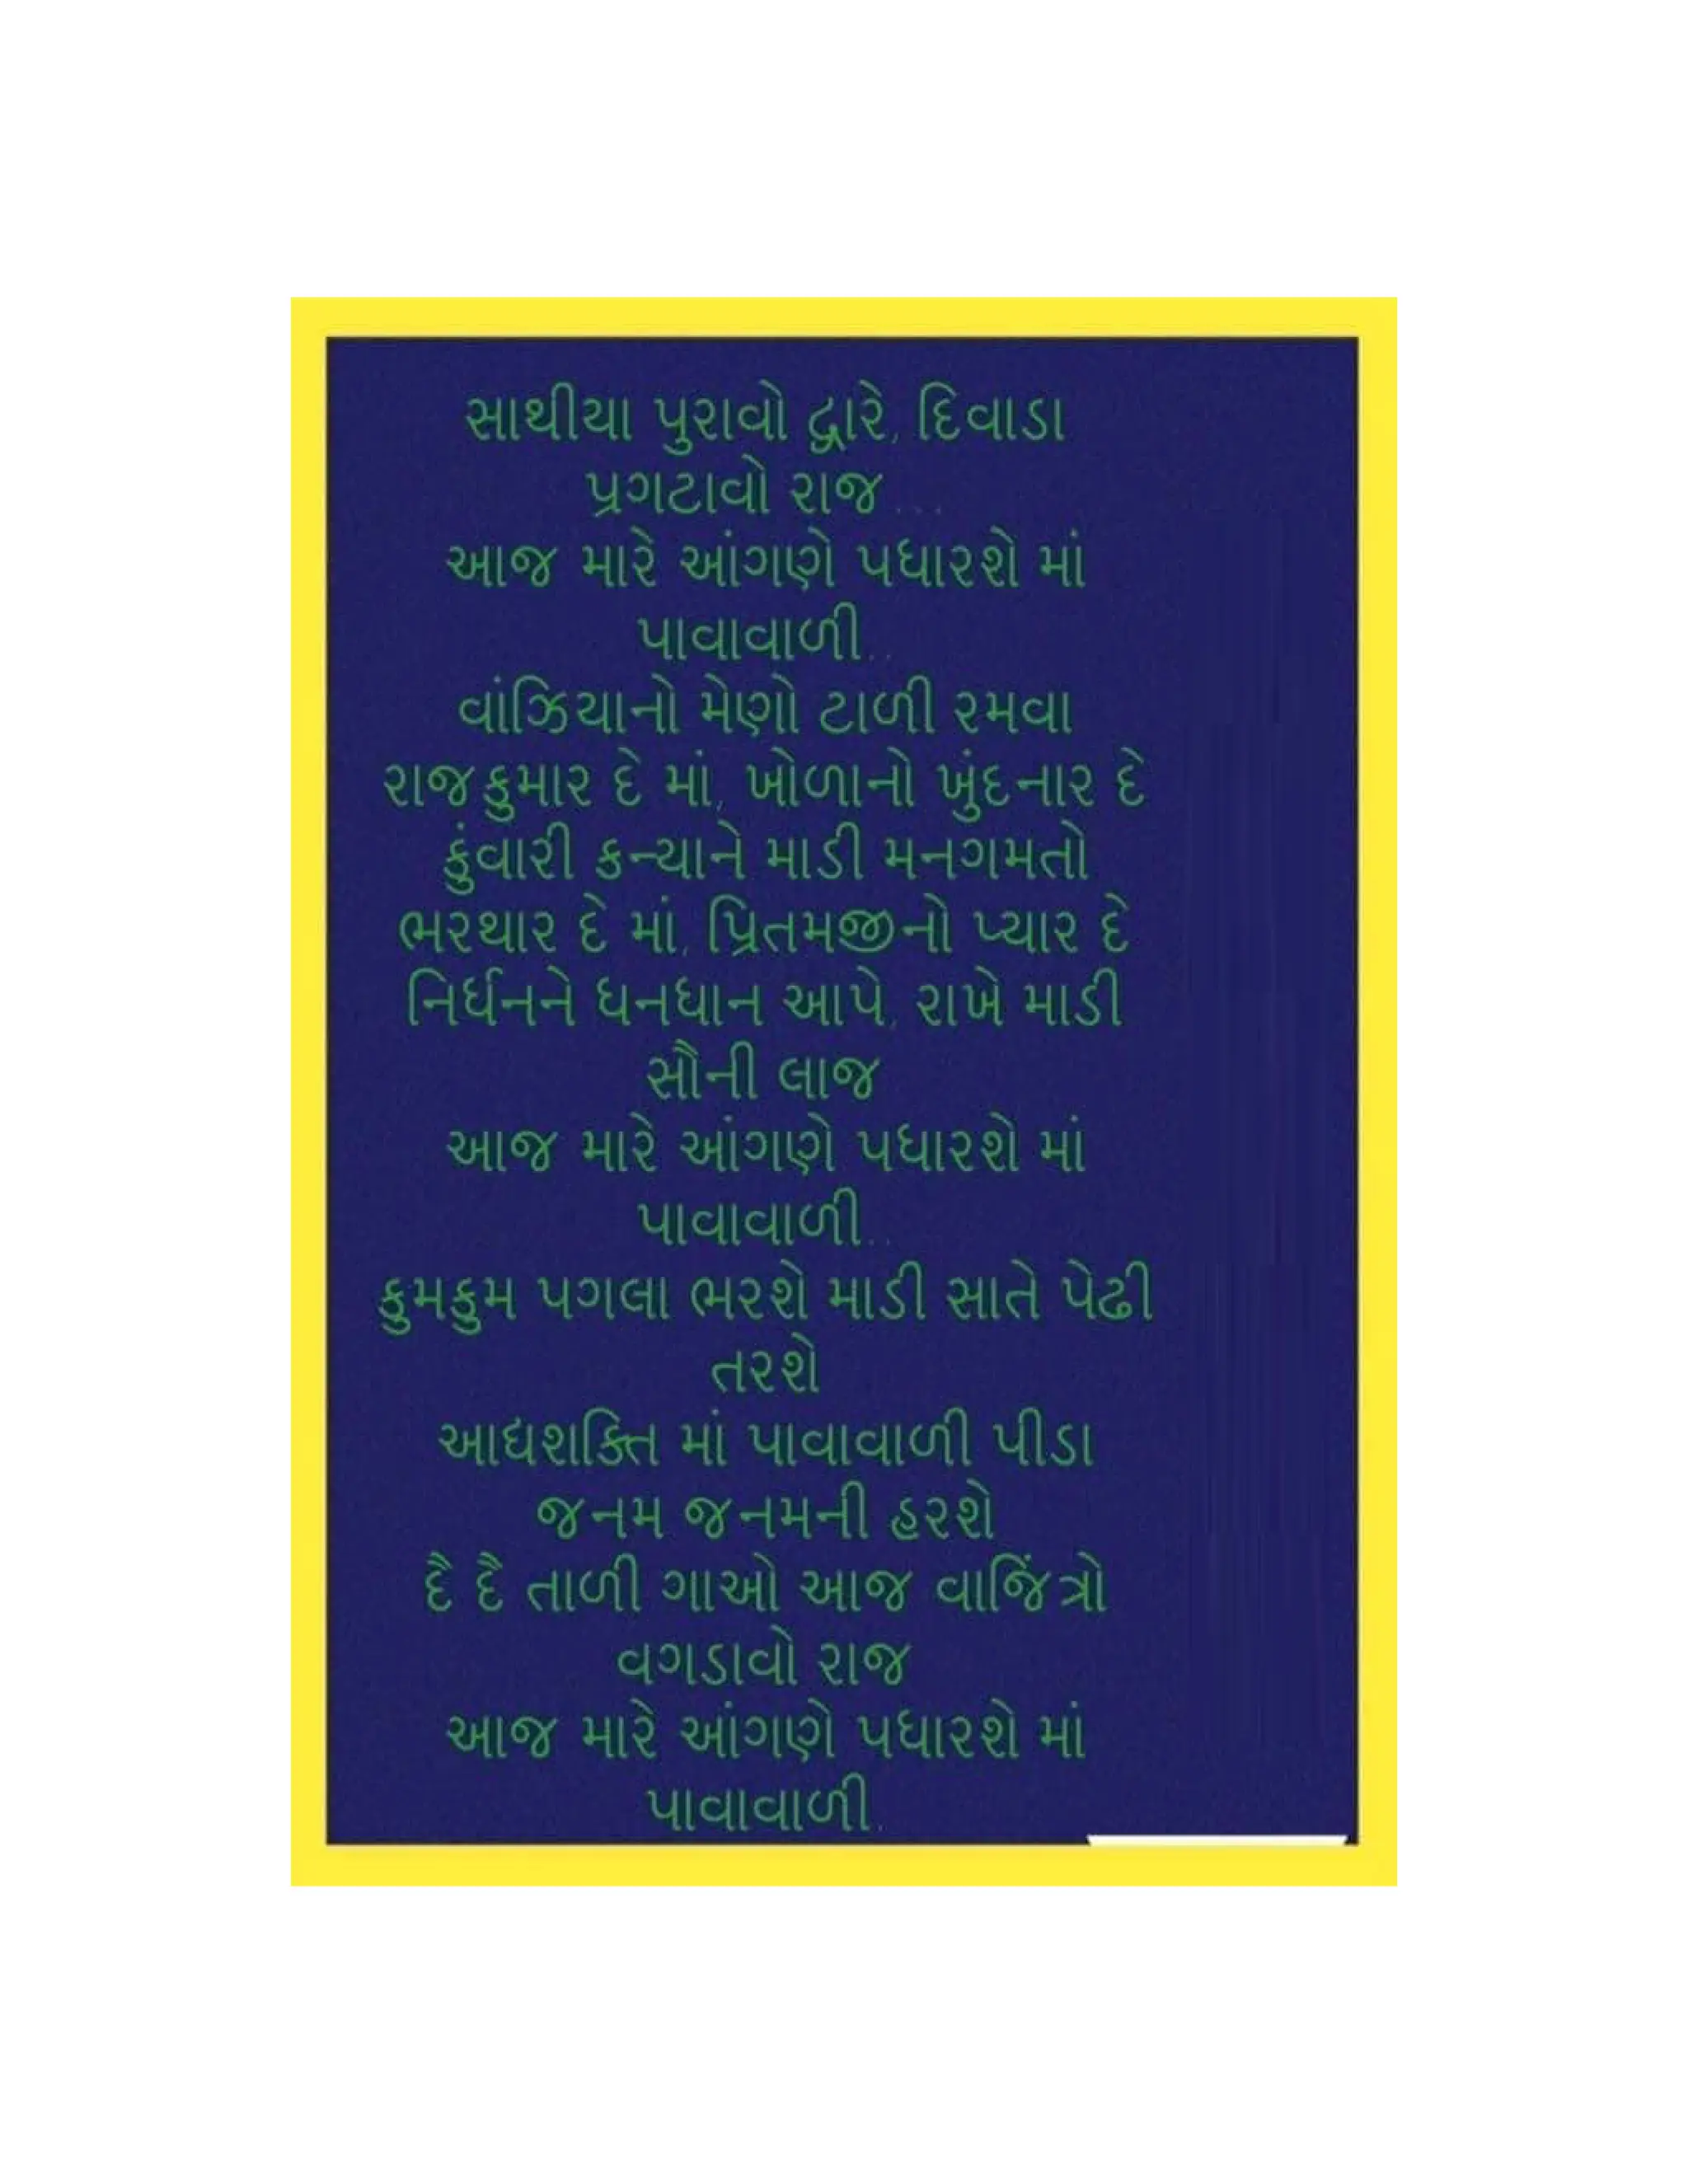 સાથીયા પુરાવો દ્વારે, દિવાડા
પ્રગટાવો રાજ ...
આજ મારે આંગણે પધારશે માં
પાવાવાળી..
વાંઝિયાનો મેણો ટાળી રમવા
રાજકુમાર દે માં, ખોળાનો ખુંદનાર દે
કુંવારી કન્યાને માડી મનગમતો
ભરથાર દે માં, પ્રિતમજીનો પ્યાર દે
નિર્ધનને ધનધાન આપે, રાખે માડી
સૌની લાજ
આજ મારે આંગણે પધારશે માં
પાવાવાળી..
કુમકુમ પગલા ભરશે માડી સાતે પેઢી
તરશે
આદ્યશક્તિ માં પાવાવાળી પીડા
જનમ જનમની હરશે
દૈ દૈ તાળી ગાઓ આજ વાજિંત્રો
વગડાવો રાજ
આજ મારે આંગણે પધારશે માં
પાવાવાળી.